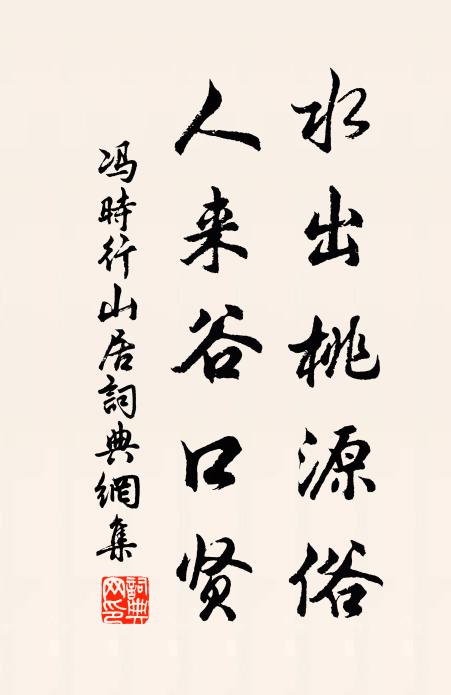 水出桃源俗
人来谷口贤
冯時行山居詞典網集
詞典网印